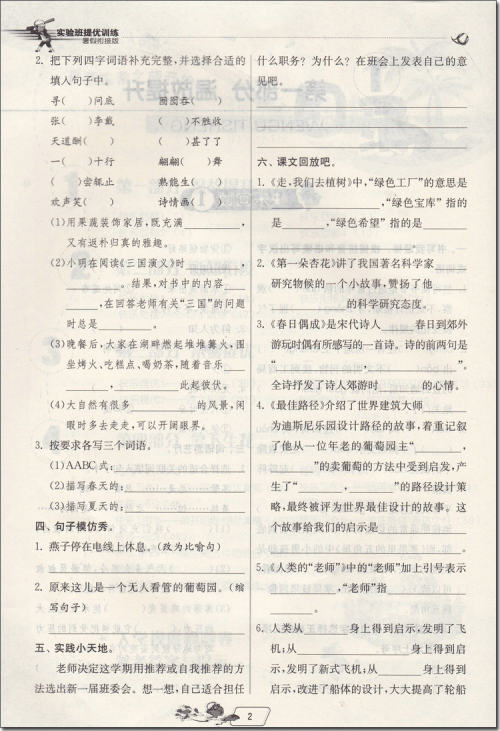 实验班提优训练
暑假衔接版
2. 把下列四字词语补充完整,并选择合适的
填入句子中。
寻( )问底 囫囵吞( )
张( )李戴 ( )不胜收
天道酬( ) ( )甚了了
一( )十行 翩翩( )舞
( )尝辄止 熟能生( )
欢声笑( ) 诗情画( )
(1)用果蔬装饰家居,既充满________,
又有返朴归真的雅趣。
(2)小明在阅读《三国演义》时________,
________。结果,对书中的内容____
________,在回答老师有关“三国”的问题
时总是________。
(3)晚餐后,大家在湖畔燃起堆堆篝火,围
坐烤火、吃糕点、喝奶茶,随着音乐____
________,________此起彼伏。
(4)大自然有很多________的风景,闲
暇时多去走走,可以开阔眼界。
3. 按要求各写三个词语。
(1)AABC式:________
(2)描写春天的:________
(3)描写夏天的:________
四、句子模仿秀。
1. 燕子停在电线上休息。(改为比喻句)
________
2. 原来这儿是一个无人看管的葡萄园。(缩
写句子)
________
五、实践小天地。
老师决定这学期用推荐或自我推荐的方
法选出新一届班委会。想一想,自己适合担任
什么职务?为什么?在班会上发表自己的意
见吧。________
________
________
________
六、课文回放吧。
1.《走,我们去植树》中,“绿色工厂”的意思是
________,“绿色宝库”指的
是________,“绿色希望”指的是________
________。
2.《第一朵杏花》讲了我国著名科学家____
研究物候的一个小故事,赞扬了他____
________的科学研究态度。
3.《春日偶成》是宋代诗人____春日到郊外
游玩时偶有所感写的一首诗。诗的前两句是
“________,________”。
全诗抒发了诗人郊游时________的心情。
4.《最佳路径》介绍了世界建筑大师____
为迪斯尼乐园设计路径的故事,着重记叙
了他从一位年老的葡萄园主“________,
________”的卖葡萄的方法中受到启发,产
生了“________,________”的路径设计策
略,最终被评为世界最佳设计的故事。这
个故事给我们的启示是________
________。
5.《人类的“老师”》中的“老师”加上引号表示
________,“老师”指________
________。
6. 人类从________身上得到启示,发明了飞
机;从________身上得到启
示,发明了新式飞机;从________身上得到
启示,改进了船体的设计,大大提高了轮船
2